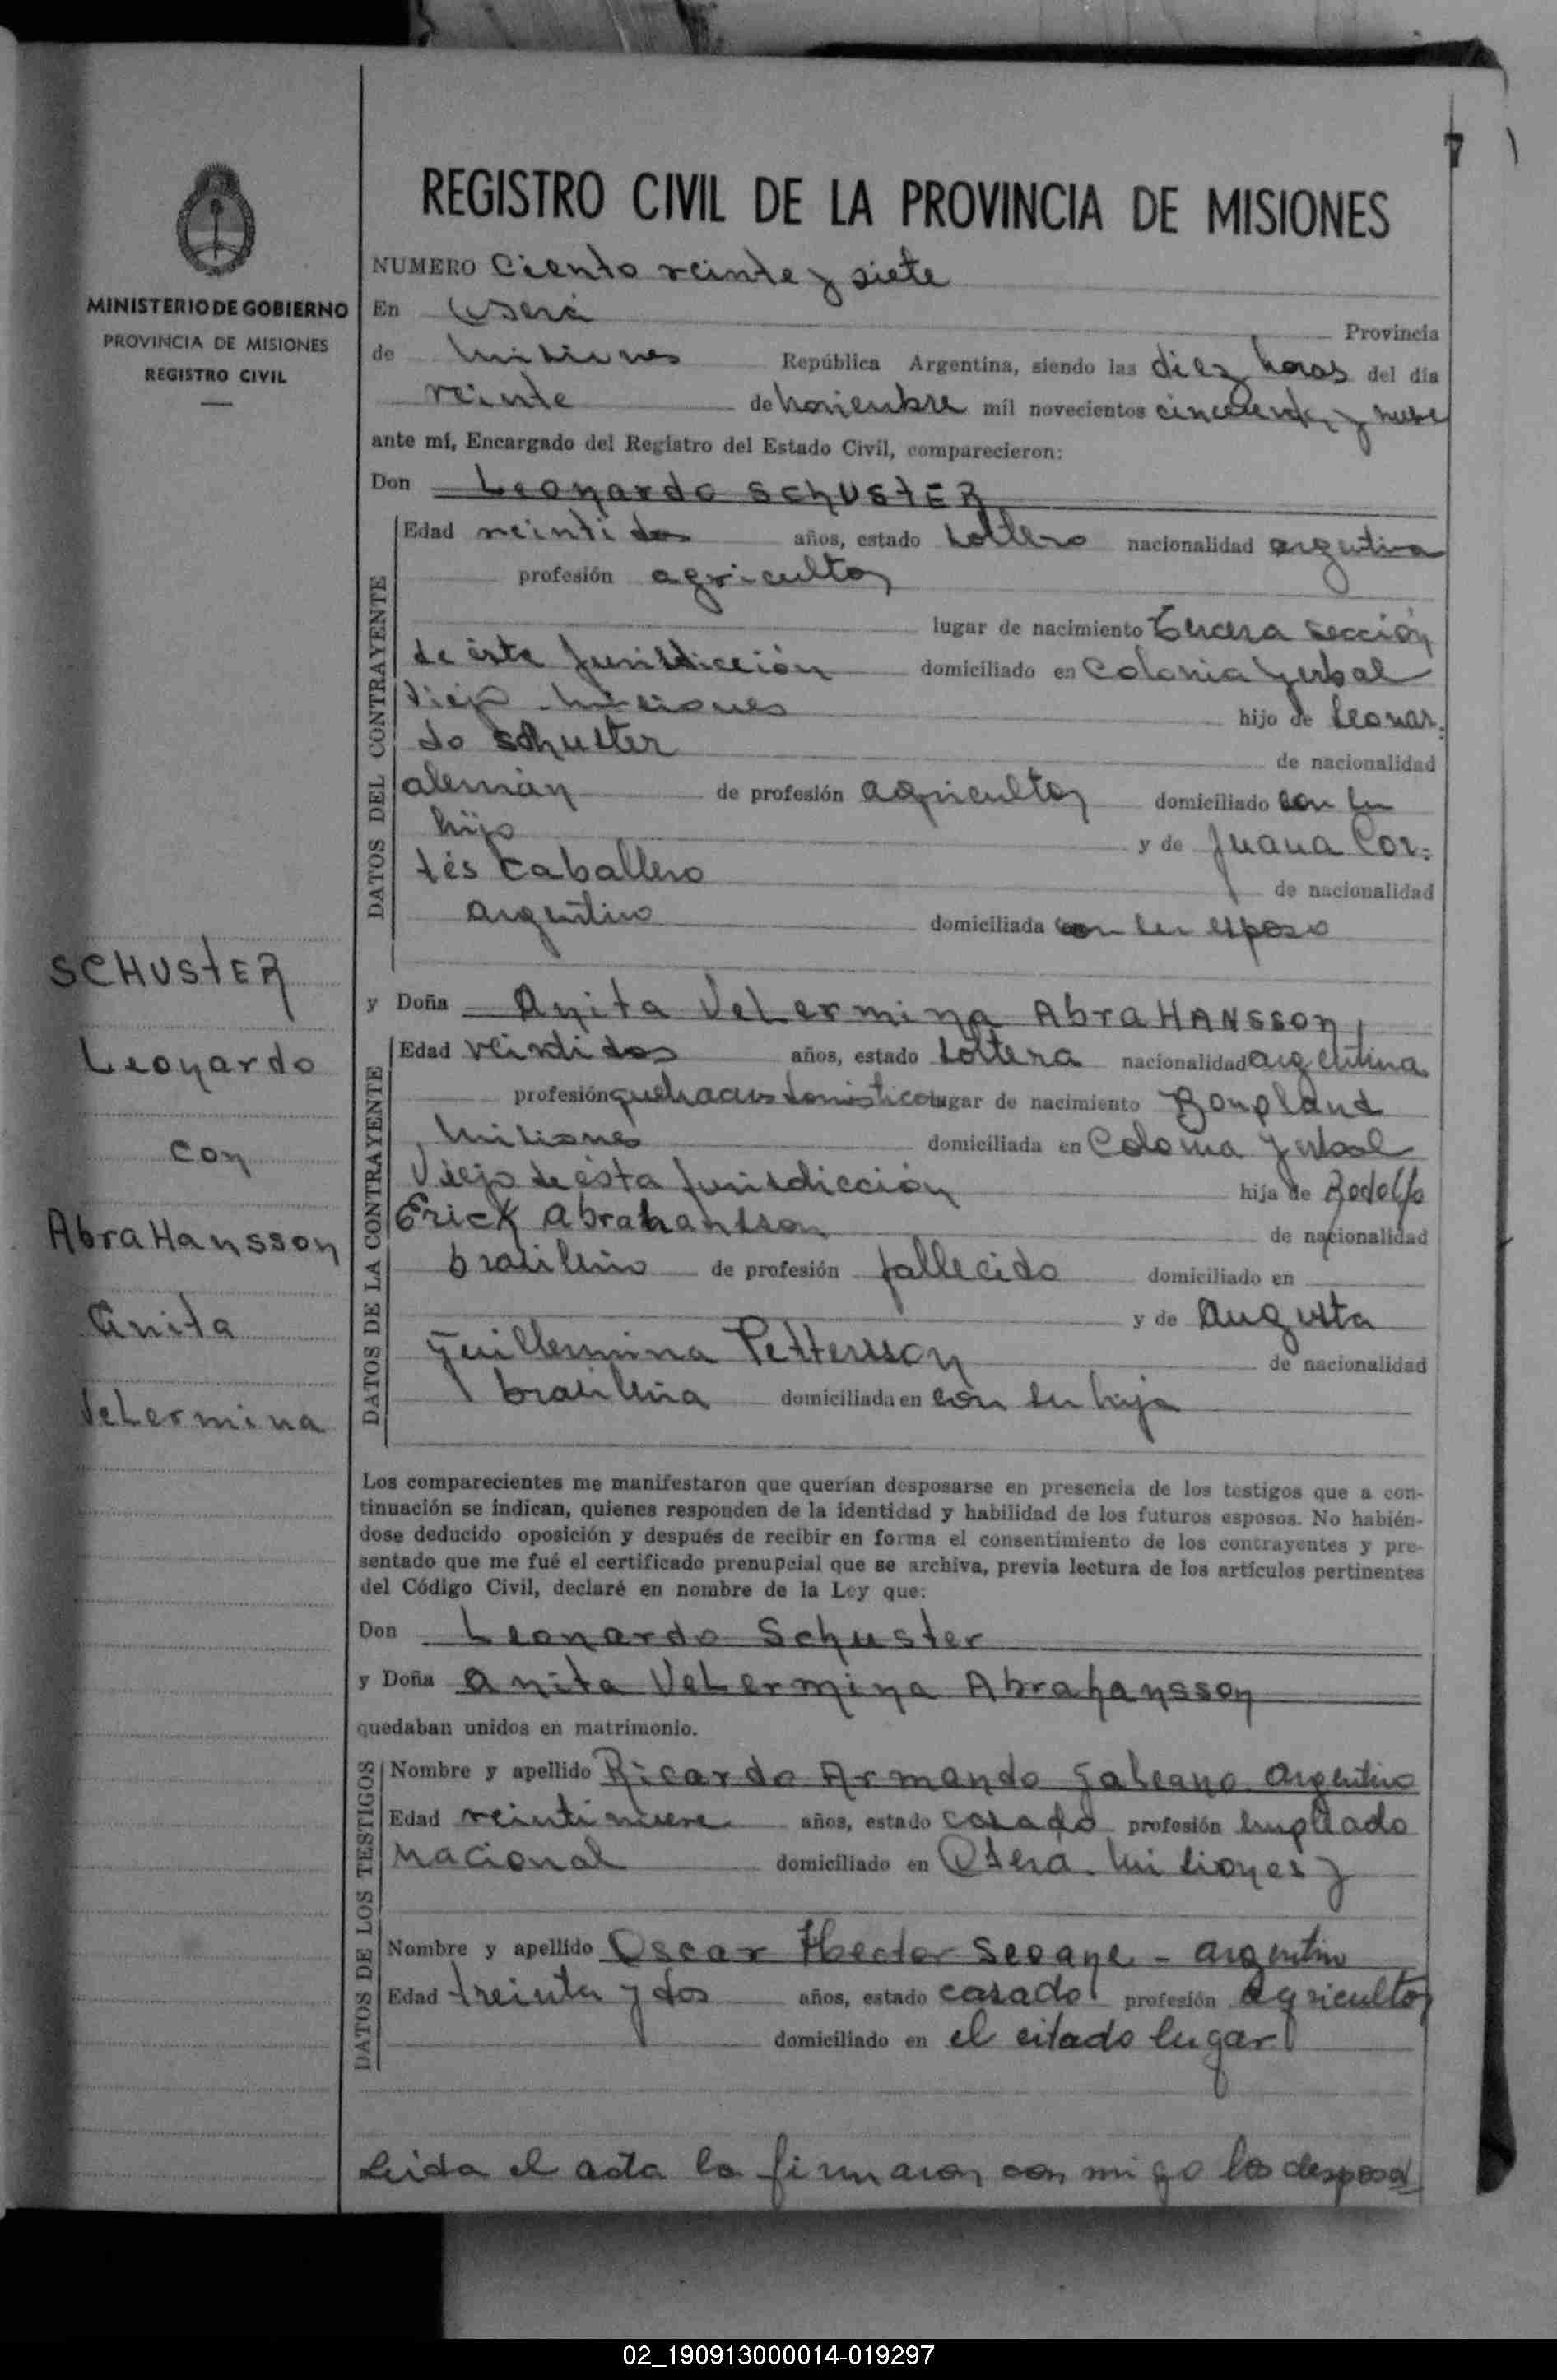 7
REGISTRO CIVIL DE LA PROVINCIA DE MISIONES
MINISTERIO DE GOBIERNO
PROVINCIA DE MISIONES
REGISTRO CIVIL
NUMERO Ciento veinte y siete
En Oberá Provincia
de Misiones República Argentina, siendo las diez horas del día
veinte de noviembre mil novecientos cincuenta y nueve
ante mí, Encargado del Registro del Estado Civil, comparecieron:
Don Leonardo SCHUSTER
DATOS DEL CONTRAYENTE
Edad veintidos años, estado soltero nacionalidad argentina
profesión agricultor
lugar de nacimiento tercera sección
de ésta Jurisdicción domiciliado en Colonia Yerbal
Viejo - Misiones hijo de Leonar-
do Schuster de nacionalidad
alemán de profesión agricultor domiciliado con su
hijo y de Juana Cor-
tés Caballero de nacionalidad
argentino domiciliada con su esposo
y Doña Anita Velermina AbraHANSSON
DATOS DE LA CONTRAYENTE
Edad veintidos años, estado soltera nacionalidad argentina
profesión quehaceres domésticos lugar de nacimiento Bonpland
Misiones domiciliada en Colonia Yerbal
Viejo de ésta Jurisdicción hija de Rodolfo
Erick Abrahansson de nacionalidad
brasileño de profesión fallecido domiciliado en
y de Augusta
Guillermina Pettersson de nacionalidad
brasileña domiciliada en con su hija
SCHUSTER
Leonardo
con
AbraHansson
Anita
Velermina
Los comparecientes me manifestaron que querían desposarse en presencia de los testigos que a con-
tinuación se indican, quienes responden de la identidad y habilidad de los futuros esposos. No habién-
dose deducido oposición y después de recibir en forma el consentimiento de los contrayentes y pre-
sentado que me fué el certificado prenupcial que se archiva, previa lectura de los artículos pertinentes
del Código Civil, declaré en nombre de la Ley que:
Don Leonardo Schuster
y Doña Anita Velermina Abrahansson
quedaban unidos en matrimonio.
DATOS DE LOS TESTIGOS
Nombre y apellido Ricardo Armando Galeano. Argentino
Edad veintinueve años, estado casado profesión empleado
Nacional domiciliado en Oberá Misiones y
Nombre y apellido Oscar Hector Seoane - argentino
Edad treinta y dos años, estado casado profesión agricultor
domiciliado en el citado lugar
Leida el acta la firmaron conmigo los desposa
02_190913000014-019297